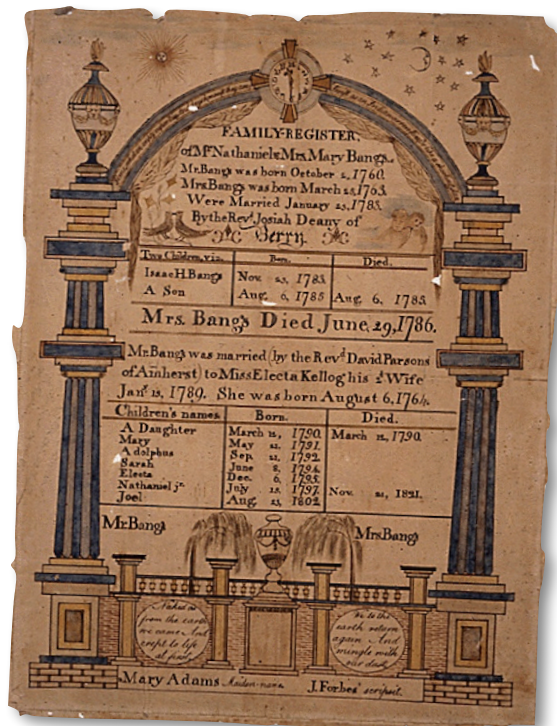 FAMILY-REGISTER,
of Mr. Nathaniel & Mrs. Mary Bangs.
Mr. Bangs was born October 2, 1760.
Mrs. Bangs was born March 25, 1763.
Were Married January 23, 1783.
By the Revd. Josiah Deany of
Berry.
Two Children, viz. Born. Died.
Isaac H. Bangs Nov. 23, 1783.
A Son Aug. 6, 1785 Aug. 6, 1785.
Mrs. Bangs Died June, 29, 1786.
Mr. Bangs was married (by the Revd. David Parsons
of Amherst) to Miss Electa Kellog his 2d. Wife
Jany. 15, 1789. She was born August 6, 1764.
Children's names. Born. Died.
A Daughter March 12, 1790. March 12, 1790.
Mary May 21, 1791.
Adolphus Sep. 21, 1792.
Sarah June 8, 1794.
Electa Dec. 6, 1795.
Nathaniel jr. July 15, 1797. Nov. 21, 1821.
Joel Aug. 23, 1802
Mr. Bangs
Mrs. Bangs
Naked as
from the earth
we came And
crept to life
at first
We to the
earth return
again And
mingle with
our dust
Mary Adams Maiden-name J. Forbes' scripsit.